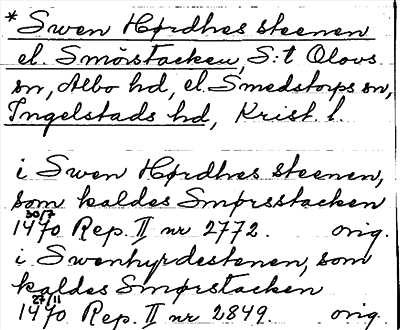 * Swen Hørdhes steenen
el. Smörstacken, S:t Olovs
sn, Albo hd, el. Smedstorps sn,
Ingelstads hd, Krist. l.
i Swen Hørdhes steenen,
som kaldes Smørsstacken
30/7
1470 Rep. II nr 2772. orig.
i Swenhyrdestenen, som
kaldes Smørstacken
27/11
1470 Rep. II nr 2849. orig.